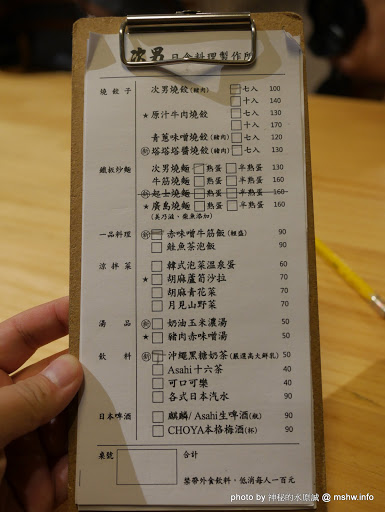 次男 日食料理製作所
燒餃子 次男燒餃(豬肉) 七入 100
十入 140
★原汁牛肉燒餃 七入 130
十入 170
青蔥味噌燒餃(豬肉) 七入 120
塔塔塔醬燒餃(豬肉) 七入 130
鐵板炒麵 次男燒麵 熟蛋 半熟蛋 130
牛筋燒麵 熟蛋 半熟蛋 160
起士燒麵 熟蛋 半熟蛋 160
★廣島燒麵 熟蛋 半熟蛋 160
(美乃滋、柴魚添加)
一品料理 赤味噌牛筋飯(輕盛) 90
鮭魚茶泡飯 90
涼拌菜 韓式泡菜溫泉蛋 60
★胡麻蘆筍沙拉 70
胡麻青花菜 70
月見山野菜 70
湯品 奶油玉米濃湯 50
★豬肉赤味噌湯 50
飲料 沖繩黑糖奶茶(嚴選高大鮮乳) 50
Asahi十六茶 40
可口可樂 40
各式日本汽水 90
日本啤酒 麒麟/Asahi生啤酒(瓶) 90
CHOYA本格梅酒(杯) 90
桌號 合計
禁帶外食飲料，低消每人一百元
photo by 神秘的水原誠 @ mshw.info